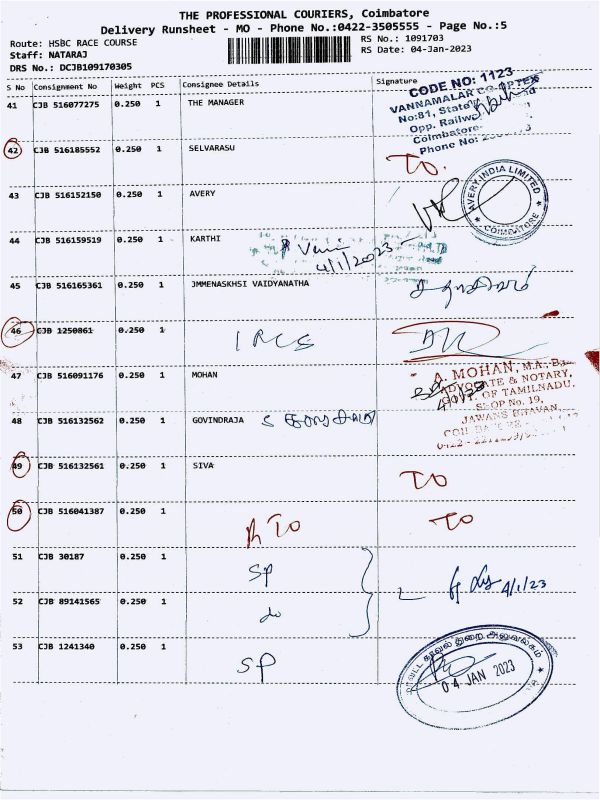 THE PROFESSIONAL COURIERS, Coimbatore
Delivery Runsheet - MO - Phone No.:0422-3505555 - Page No.:5
Route: HSBC RACE COURSE
RS No.: 1091703
Staff: NATARAJ
RS Date: 04-Jan-2023
DRS No.: DCJB109170305
S No Consignment No Weight PCS Consignee Details Signature
41 CJB 516077275 0.250 1 THE MANAGER
CODE NO: 1123
VANNAMALAR CO-OPTEX
No:81, State
Opp. Railway
Coimbatore-
Phone No:
42 CJB 516185552 0.250 1 SELVARASU TO.
43 CJB 516152150 0.250 1 AVERY
AVERY-INDIA LIMITED
COIMBATORE
44 CJB 516159519 0.250 1 KARTHI
4/1/2023
45 CJB 516165361 0.250 1 JMMENASKHSI VAIDYANATHA
46 CJB 1250861 0.250 1
47 CJB 516091176 0.250 1 MOHAN
A. MOHAN, M.A., B.
ADVOCATE & NOTARY,
GOVT. OF TAMILNADU,
SHOP No. 19,
JAWANS BHAVAN,
4/1/23
48 CJB 516132562 0.250 1 GOVINDRAJA
49 CJB 516132561 0.250 1 SIVA TO
50 CJB 516041387 0.250 1 RTO TO
51 CJB 30187 0.250 1 SP
4/1/23
52 CJB 89141565 0.250 1 do
53 CJB 1241340 0.250 1 SP
04 JAN 2023